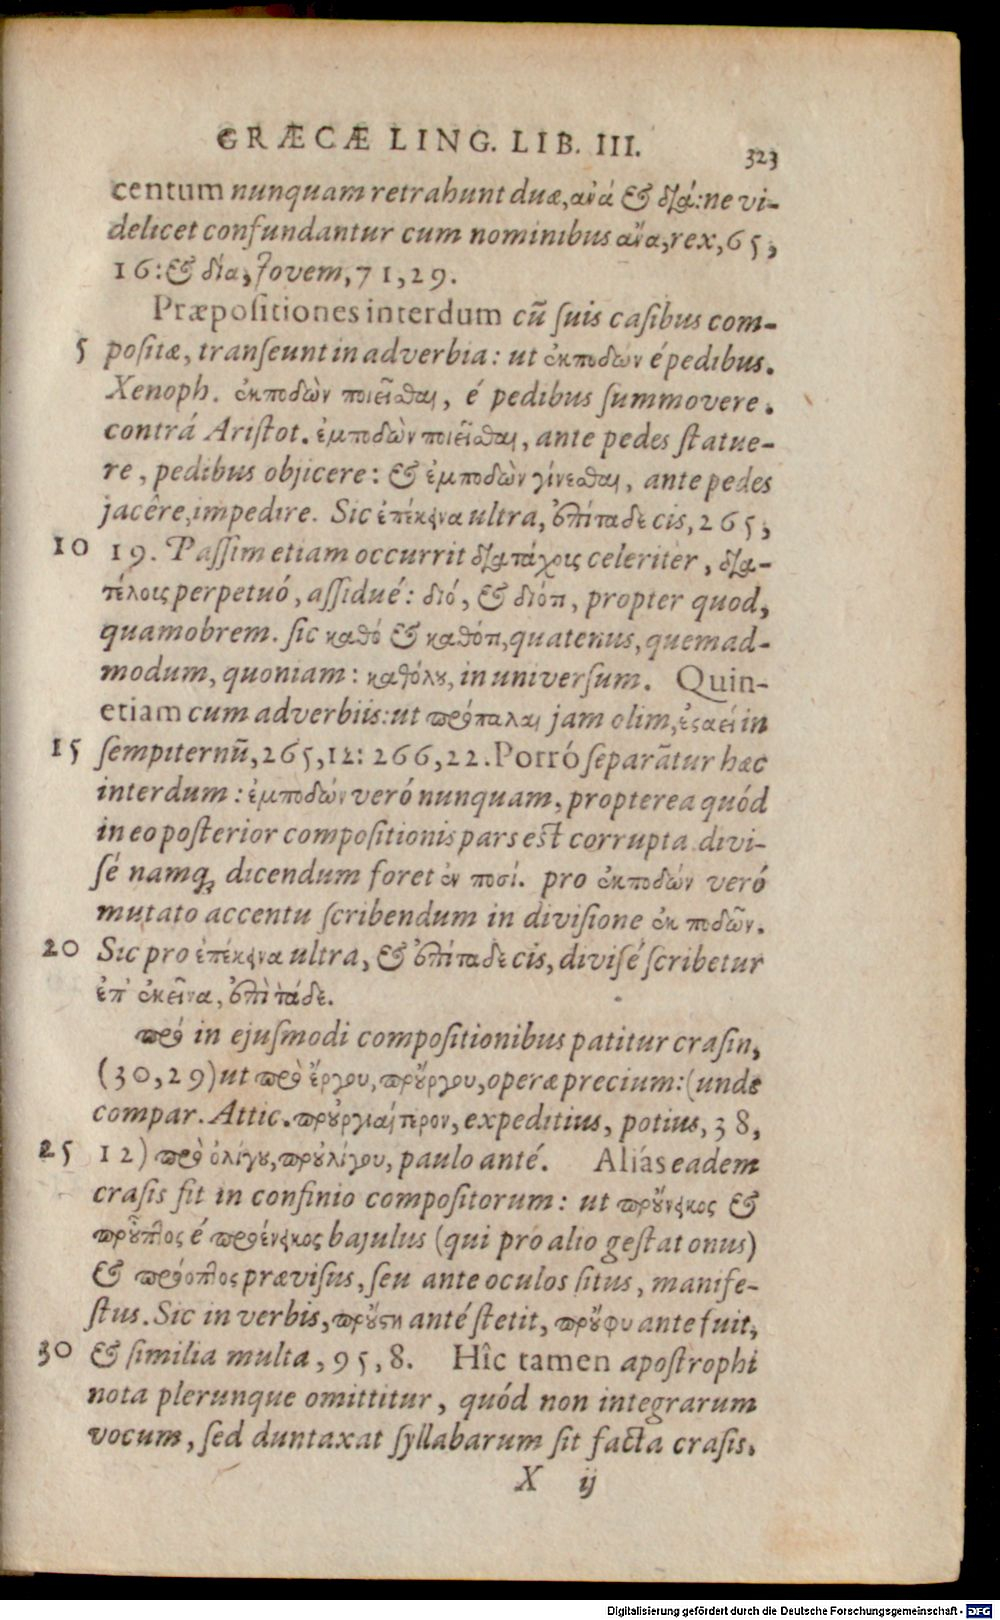 GRÆCÆ LING. LIB. III. 323
centum nunquam retrahunt duæ, ἀνά & διά: ne vi-
delicet confundantur cum nominibus ἄνα, rex, 65,
16: & δία, Jovem, 71, 29.
Præpositiones interdum cū suis casibus com-
5 positæ, transeunt in adverbia: ut ἐκποδών é pedibus.
Xenoph. ἐκποδὼν ποιεῖσθαι, é pedibus summovere.
contrá Aristot. ἐμποδὼν ποιεῖσθαι, ante pedes statue-
re, pedibus objicere: & ἐμποδὼν γίνεσθαι, ante pedes
jacêre, impedire. Sic ἐπέκεινα ultra, ἐπίταδε cis, 265,
10 19. Passim etiam occurrit διατάχοις celeriter, δια-
τέλοις perpetuó, assidué: διό, & διότι, propter quod,
quamobrem. sic καθό & καθότι, quatenus, quemad-
modum, quoniam: καθόλου, in universum. Quin-
etiam cum adverbiis: ut πρόπαλαι jam olim, ἐσαεί in
15 sempiternū, 265, 12: 266, 22. Porró separātur hæc
interdum: ἐμποδών veró nunquam, propterea quód
in eo posterior compositionis pars est corrupta. divi-
sé namq́; dicendum foret ἐν ποσί. pro ἐκποδών veró
mutato accentu scribendum in divisione ἐκ ποδῶν.
20 Sic pro ἐπέκεινα ultra, & ἐπίταδε cis, divisé scribetur
ἐπ' ἐκεῖνα, ἐπὶ τάδε.
πρό in ejusmodi compositionibus patitur crasin,
(30, 29) ut πρὸ ἔργου, προὔργου, operæ precium: (unde
compar. Attic. προὐργιαίτερον, expeditius, potius, 38,
25 12) πρὸ ὀλίγου, προὐλίγου, paulo anté. Aliás eadem
crasis fit in confinio compositorum: ut προὔνεικος &
προὖπτος é προένεικος bajulus (qui pro alio gestat onus)
& πρόοπτος prævisus, seu ante oculos situs, manife-
stus. Sic in verbis, προὔστη anté stetit, προὔφυ ante fuit,
30 & similia multa, 95, 8. Hîc tamen apostrophi
nota plerunque omittitur, quód non integrarum
vocum, sed duntaxat syllabarum sit facta crasis.
X ij
Digitalisierung gefördert durch die Deutsche Forschungsgemeinschaft - DFG